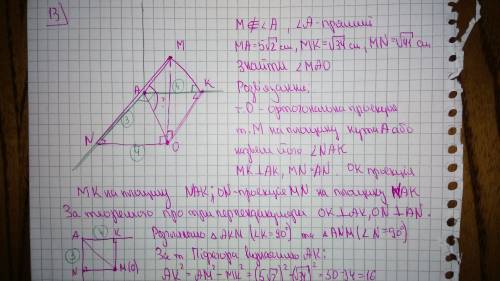 13)
M∉∠A, ∠A-прямий
MA=5√2 см, MK=√34 см, MN=√41 см
Знайти ∠MAO
Розв'язання:
т.O - ортогональна проекція
т.M на площину кута A або
його ∠NAK
MK⊥AK, MN=AN. OK проекція
MK на площину NAK; ON-проекція MN на площину NAK
За теоремою про три перпендикуляри OK⊥AK, ON⊥AN.
Розглянемо △AKM (∠K=90°) та △ANM (∠N=90°)
За т. Піфагора AK:
AK²=AM²-MK²=(5√2)²-(√34)²=50-34=16
M
A
5
K
?
3
N
4
O
A
4
K
3
N
M(O)